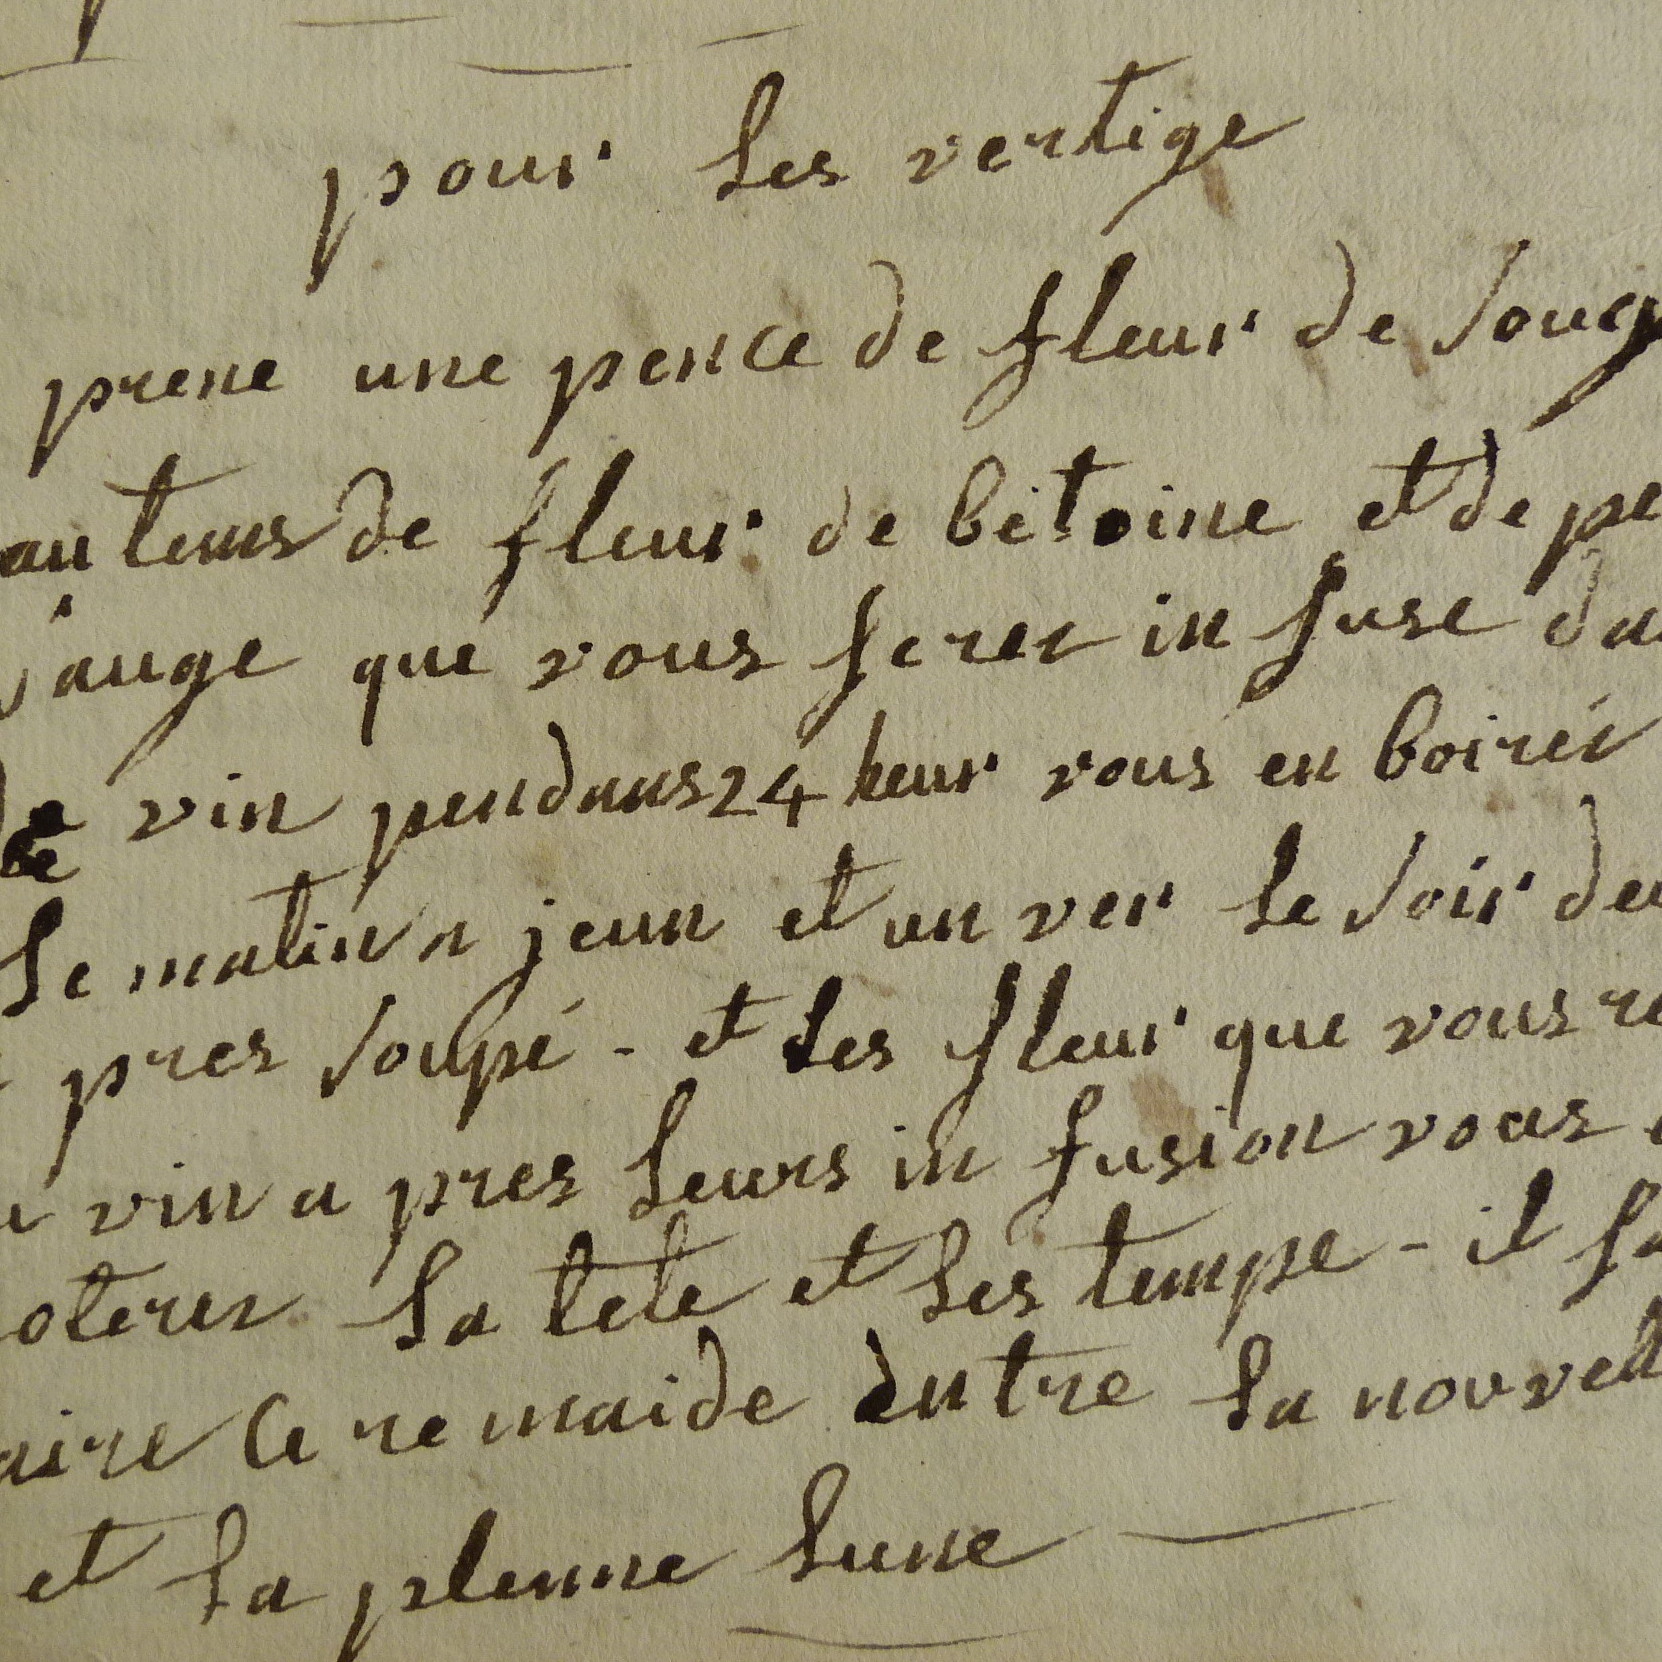 pour les vertige
prene une pence de fleur de soucy
autems de fleur de bétoine et de pe
sauge que vous ferez in fuse da
de vin pendans 24 heur vous en boiréz
le matin a jeun et un ver le soir deu
pres soupé - et les fleur que vous re
vin a pres leurs in fusion vous
oterez la tete et les tempe - il fa
aire ce re maide entre la nouvell
et la plenne lune